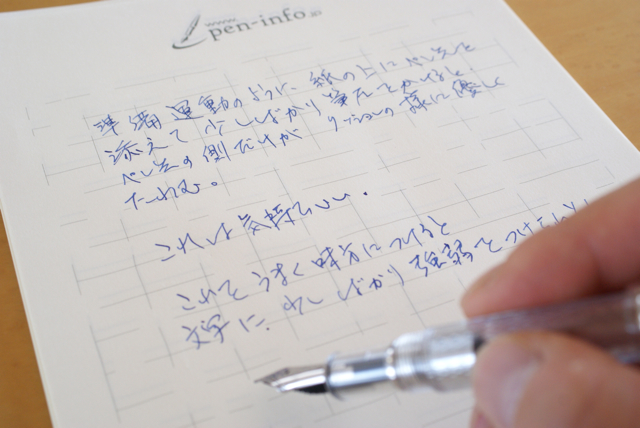 www.
pen-info.jp
準備運動のように、紙の上にペン先を
添えて少しばかり筆圧をかけると
ペン先の側だけが クッションの様に優しく
たわむ。
これは気持ちいい。
これをうまく味方につけると
文字に、少しばかり強弱をつけられ